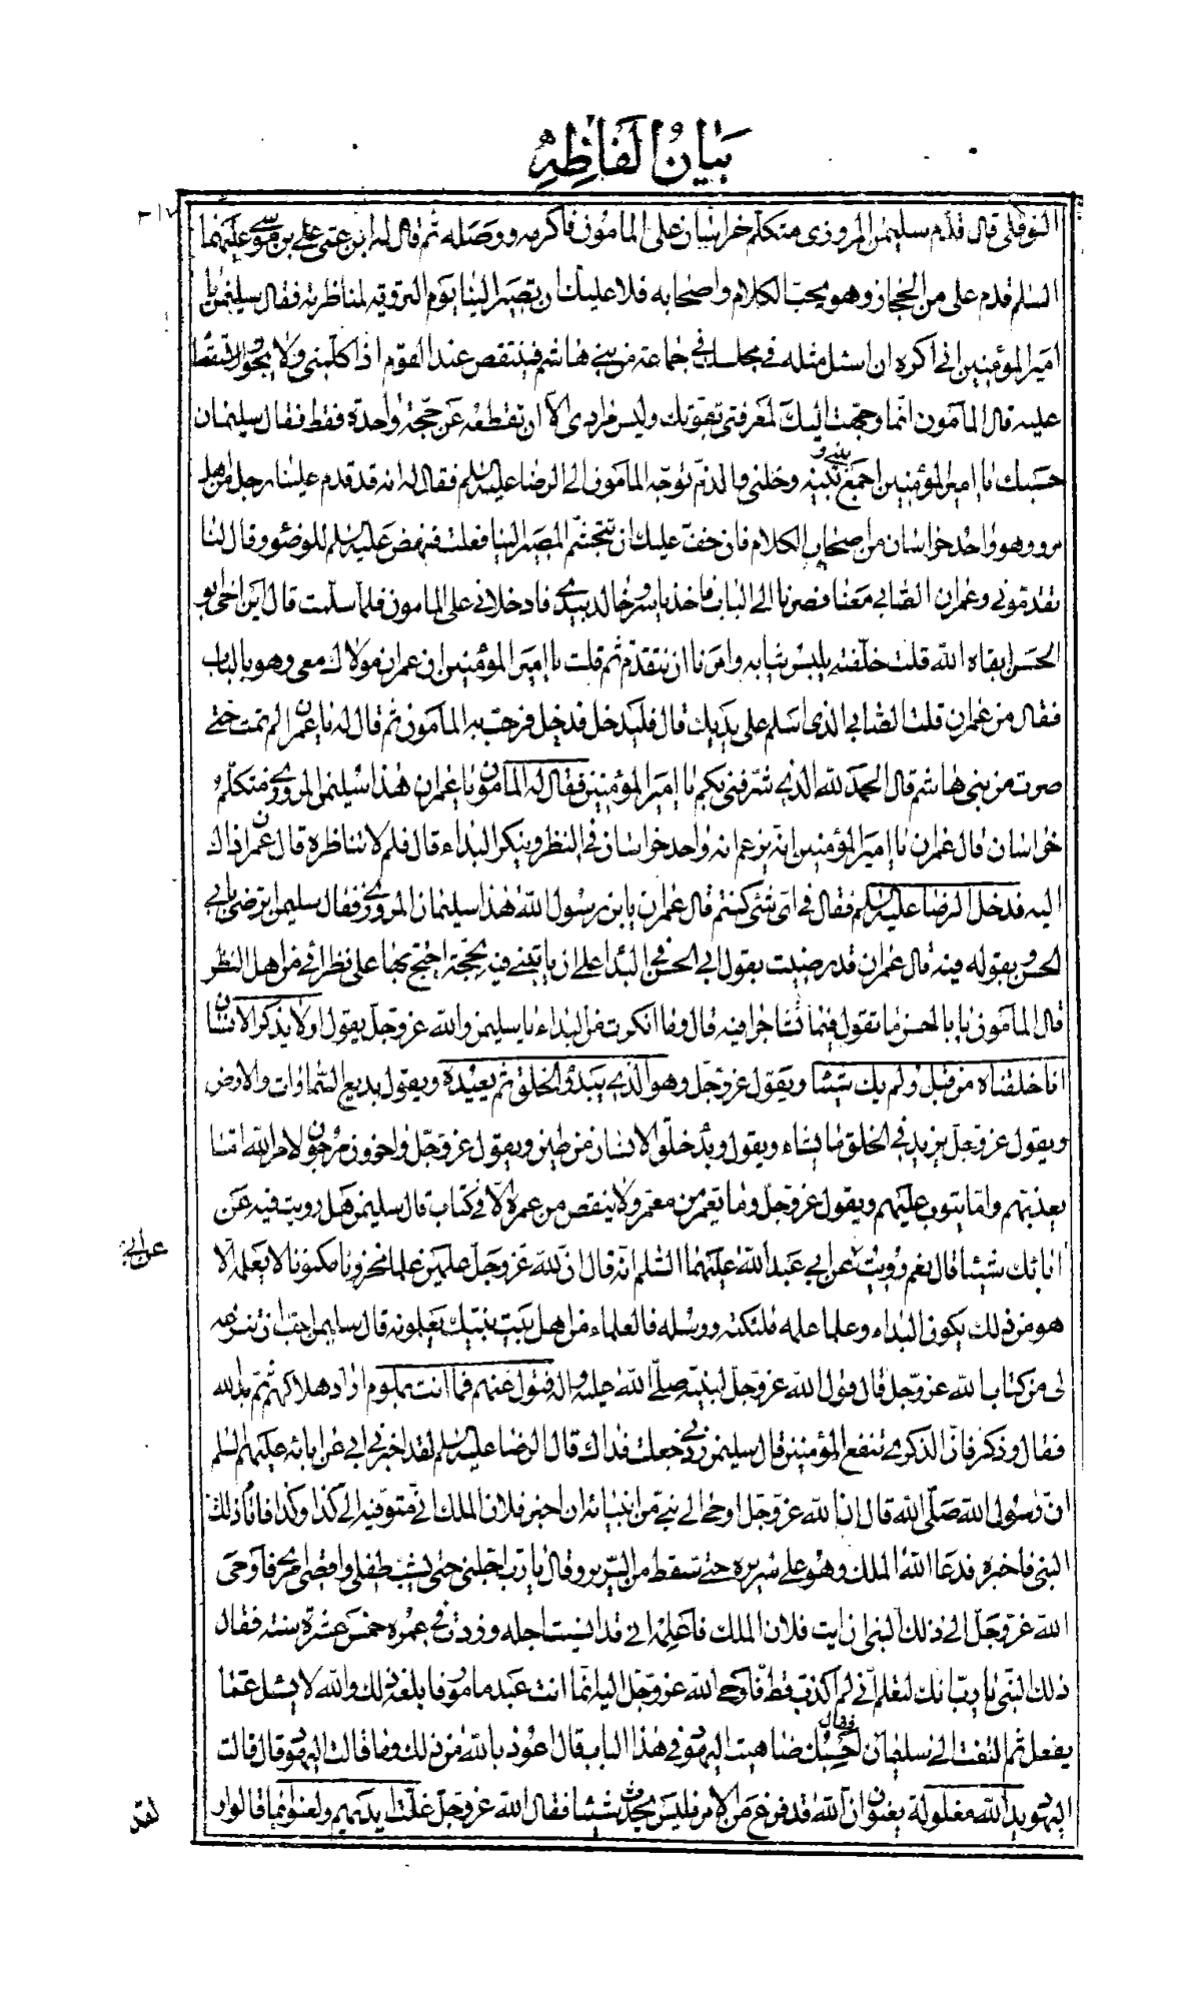 بيان الفاظه
٣١٧
النوفلى قال قدم سليمن المروزى متكلم خراسان على المامون فاكرمه ووصله ثم قال له ان ابن عمى على بن موسى عليهما
السلم قدم على من الحجاز وهو يحب الكلام واصحابه فلا عليك ان تصير الينا يوم التروية لمناظرته فقال سليمن يا
امير المؤمنين انى اكره ان اسئل مثله فى مجلسك فى جماعة من بنى هاشم فينتقص عند القوم اذا كلمنى ولا يجوز الانتقصا
عليه قال المأمون انما وجهت اليك لمعرفتى بقوتك وليس مرادى الا ان تقطعه عن حجة واحدة فقط فقال سليمان
حسبك يا امير المؤمنين اجمع بينى و بينه وخلنى والذم فوجه المأمون الى الرضا عليه السلم فقال له انه قد قدم علينا رجل من اهل
مرو وهو واحد خراسان من اصحاب الكلام فان خف عليك ان تتجشم المصير الينا فعلت فنهض عليه السلم للوضوء وقال لنا
تقدمونى وعمران الصابى معنا فصرنا الى الباب فاخذ ياسر وخالد بيدى فادخلانى على المامون فلما سلمت قال اين اخى ابو
الحسن ابقاه الله قلت خلفته يلبس ثيابه وامرنا ان نتقدم ثم قلت يا امير المؤمنين ان عمران مولاك معى وهو بالباب
فقال من عمران قلت الصابى الذى اسلم على يديك قال فليدخل فدخل فرحب به المأمون ثم قال له يا عمران لم تمت حتى
صرت من بنى هاشم قال الحمد لله الذى شرفنى بكم يا امير المؤمنين فقال له المأمون يا عمران هذا سليمن المروزى متكلم
خراسان قال عمران يا امير المؤمنين انه يزعم انه واحد خراسان فى النظر وينكر البداء قال فلم لا تناظره قال عمران ذاك
اليه فدخل الرضا عليه السلم فقال فى اى شئ كنتم قال عمران يا بن رسول الله هذا سليمان المروزى فقال سليمن اترضى بابى
الحسن وبقوله فيه قال عمران قد رضيت بقول ابى الحسن فى البداء على ان ياتينى فيه بحجة احتج بها على نظرائى من اهل النظر
قال المأمون يا ابا الحسن ما تقول فيما تشاجرا فيه قال وما انكرت من البداء يا سليمن والله عز وجل يقول اولا يذكر الانسان
انا خلقناه من قبل ولم يك شيئا ويقول عز وجل وهو الذى يبدؤ الخلق ثم يعيده ويقول بديع السماوات والارض
ويقول عز وجل يزيد فى الخلق ما يشاء ويقول وبدأ خلق الانسان من طين ويقول عز وجل واخرون مرجون لامر الله اما
يعذبهم واما يتوب عليهم ويقول عز وجل وما يعمر من معمر ولا ينقص من عمره الا فى كتاب قال سليمن هل رويت فيه عن
ابائك شيئا قال نعم رويت عن ابى عبد الله عليهما السلم انه قال ان لله عز وجل علمين علما مخزونا مكنونا لا يعلمه الا
عن ابى
هو من ذلك يكون البداء وعلما علمه ملئكته ورسله فالعلماء من اهل بيت نبيك يعلمونه قال سليمن احب ان تنزعه
لى من كتاب الله عز وجل قال قول الله عز وجل لنبيه صلى الله عليه واله فتول عنهم فما انت بملوم اراد هلاكهم ثم بدا لله
فقال وذكر فان الذكرى تنفع المؤمنين قال سليمن زدنى جعلت فداك قال الرضا عليه السلم لقد اخبرنى ابى عن ابائه عليهم السلم
ان رسول الله صلى الله قال ان الله عز وجل اوحى الى نبى من انبيائه ان اخبر فلان الملك انى متوفيه الى كذا وكذا فاتاه ذلك
النبى فاخبره فدعا الله الملك وهو على سريره حتى سقط من السرير وقال يا رب اجلنى حتى يشب طفلى واقضى امرى فاوحى
الله عز وجل الى ذلك النبى ان ايت فلان الملك فاعلمه انى قد انسيت اجله وزدت فى عمره خمس عشرة سنة فقال
ذلك النبى يا رب انك لتعلم انى لم اكذب قط فاوحى الله عز وجل اليه انما انت عبد مامور فابلغه ذلك والله لا يسئل عما
يفعل ثم التفت الى سليمان فقال احسبك ضاهيت اليهود فى هذا الباب قال اعوذ بالله من ذلك وما قالت اليهود قال قالت
اليهود يد الله مغلولة يعنون ان الله قد فرغ من الامر فليس يحدث شيئا فقال الله عز وجل غلت ايديهم ولعنوا بما قالوا و
لقد